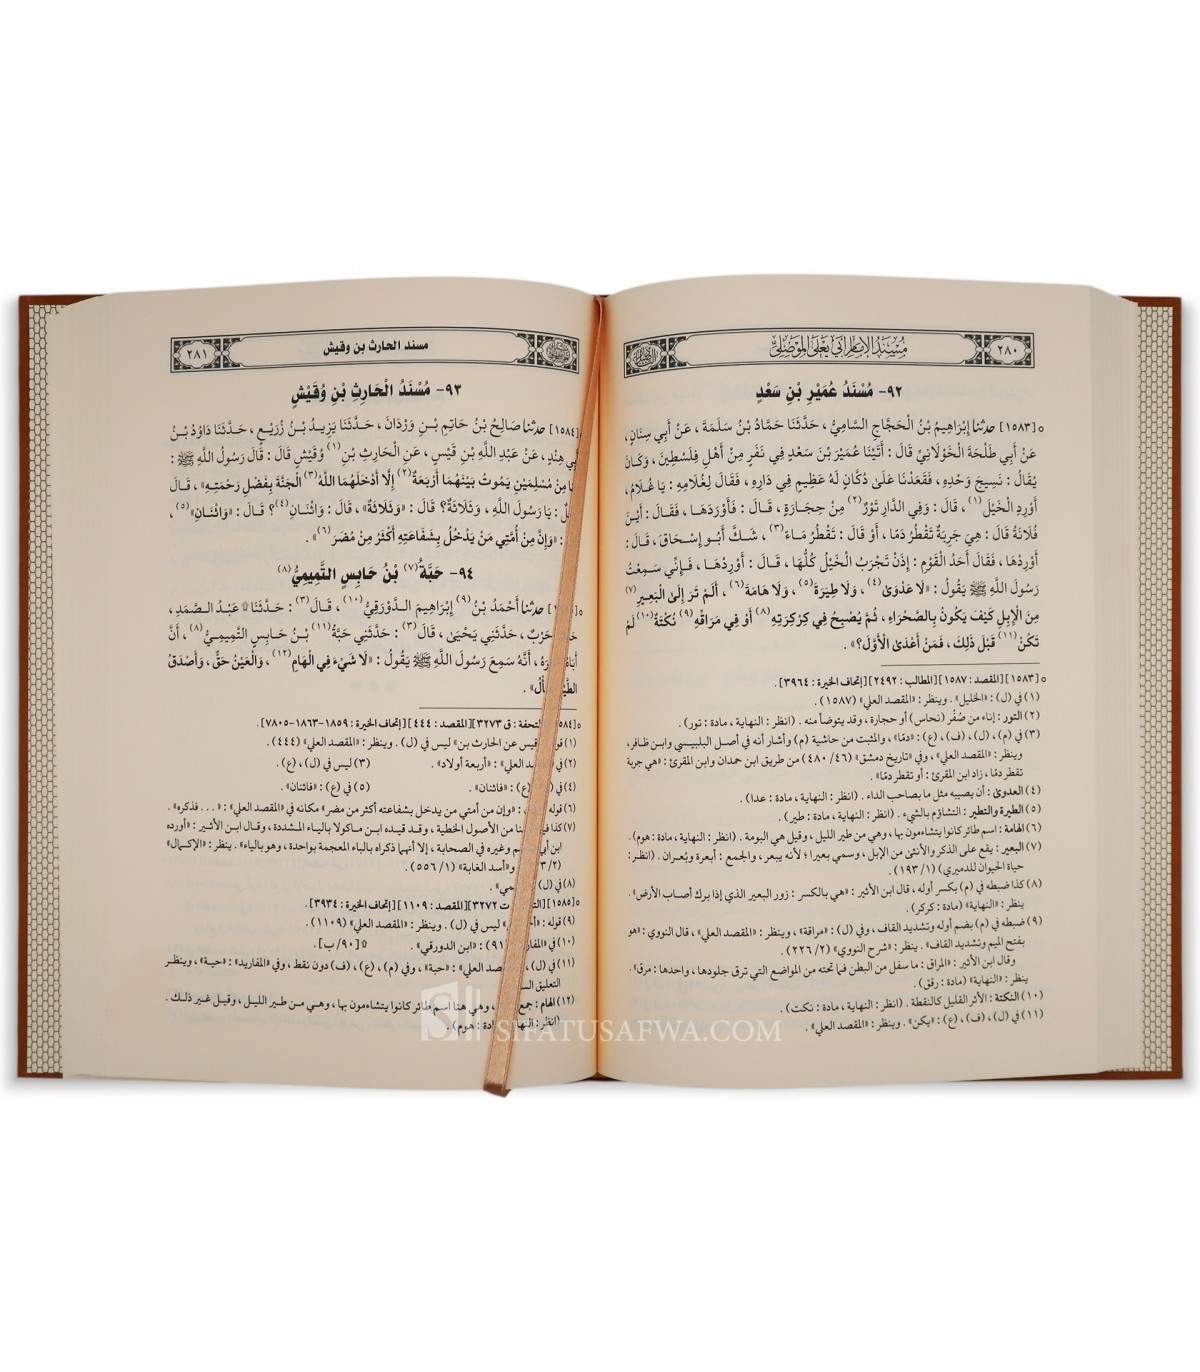 ٢٨٠
مسند الإمام أبي يعلى الموصلي
٩٢- مُسْنَدُ عُمَيْرِ بْنِ سَعْدٍ
٥ [١٥٨٣] حدثنا إِبْرَاهِيمُ بْنُ الْحَجَّاجِ السَّامِيُّ ، حَدَّثَنَا حَمَّادُ بْنُ سَلَمَةَ ، عَنْ أَبِي سِنَانٍ ،
عَنْ أَبِي طَلْحَةَ الْخَوْلَانِيِّ قَالَ : أَتَيْنَا عُمَيْرَ بْنَ سَعْدٍ فِي نَفَرٍ مِنْ أَهْلِ فِلَسْطِينَ ، وَكَانَ
يُقَالُ : نَسِيجُ وَحْدِهِ ، فَقَعَدْنَا عَلَى دُكَّانٍ لَهُ عَظِيمٍ فِي دَارِهِ ، فَقَالَ لِغُلَامِهِ : يَا غُلَامُ ،
أَوْرِدِ الْخَيْلَ (١) ، قَالَ : وَفِي الدَّارِ تَوْرٌ (٢) مِنْ حِجَارَةٍ ، قَالَ : فَأَوْرَدَهَا ، فَقَالَ : أَيْنَ
فُلَانَةُ قَالَ : هِيَ جَرِبَةٌ تَقْطُرُ دَمًا ، أَوْ قَالَ : تَقْطُرُ مَاءً (٣) ، شَكَّ أَبُو إِسْحَاقَ ، قَالَ :
أَوْرِدْهَا ، فَقَالَ أَحَدُ الْقَوْمِ : إِذَنْ تَجْرَبُ الْخَيْلُ كُلُّهَا ، قَالَ : أَوْرِدْهَا ، فَإِنِّي سَمِعْتُ
رَسُولَ اللَّهِ ﷺ يَقُولُ : «لَا عَدْوَىٰ (٤) ، وَلَا طِيَرَةَ (٥) ، وَلَا هَامَةَ (٦) ، أَلَمْ تَرَ إِلَىٰ الْبَعِيرِ (٧)
مِنَ الْإِبِلِ كَيْفَ يَكُونُ بِالصَّحْرَاءِ ، ثُمَّ يُصْبِحُ فِي كِرْكِرَتِهِ (٨) أَوْ فِي مَرَاقِّهِ (٩) نُكْتَةٌ (١٠) لَمْ
تَكُنْ (١١) قَبْلَ ذَلِكَ ، فَمَنْ أَعْدَىٰ الْأَوَّلَ؟» .
٥ [١٥٨٣] [المقصد : ١٥٨٧] [المطالب : ٢٤٩٢] [إتحاف الخيرة : ٣٩٦٤].
(١) في (ل) : «الخليل» . وينظر : «المقصد العلي» (١٥٨٧) .
(٢) التور : إناء من صُفْر (نحاس) أو حجارة ، وقد يتوضأ منه . (انظر : النهاية ، مادة : تور) .
(٣) في (م) ، (ل) ، (ف) ، (ع) : «دمًا» ، والمثبت من حاشية (م) وأشار أنه في أصل البلبيسي وابن ظافر ،
وينظر : «المقصد العلي» ، وفي «تاريخ دمشق» (٤٦/ ٤٨٠) من طريق ابن حمدان وابن المقرئ : «هي جربة
تقطر دمًا ، زاد ابن المقرئ : أو تقطر دمًا» .
(٤) العدوىٰ : أن يصيبه مثل ما بصاحب الداء . (انظر : النهاية ، مادة : عدا) .
(٥) الطيرة والتطير : التشاؤم بالشيء . (انظر : النهاية ، مادة : طير) .
(٦) الهامة : اسم طائر كانوا يتشاءمون بها ، وهي من طير الليل ، وقيل هي البومة . (انظر : النهاية ، مادة : هوم) .
(٧) البعير : يقع على الذكر والأنثىٰ من الإبل ، وسمي بعيرا ؛ لأنه يبعر ، والجمع : أبعرة وبُعران . (انظر :
حياة الحيوان للدميري) (١/ ١٩٣) .
(٨) كذا ضبطه في (م) بكسر أوله ، قال ابن الأثير : «هي بالكسر : زور البعير الذي إذا برك أصاب الأرض» .
ينظر : «النهاية» (مادة : كركر) .
(٩) ضبطه في (م) بضم أوله وتشديد القاف ، وفي (ل) : «مراقة» ، وينظر : «المقصد العلي» ، قال النووي : «هو
بفتح الميم وتشديد القاف» . ينظر : «شرح النووي» (٢/ ٢٢٦) .
وقال ابن الأثير : «المراق : ما سفل من البطن فما تحته من المواضع التي ترق جلودها ، واحدها : مرق» .
ينظر : «النهاية» (مادة : رقق) .
(١٠) النكتة : الأثر القليل كالنقطة . (انظر : النهاية ، مادة : نكت) .
(١١) في (ل) ، (ف) ، (ع) : «يكن» . وينظر : «المقصد العلي» .
مسند الحارث بن وقيش
٢٨١
٩٣- مُسْنَدُ الْحَارِثِ بْنِ وُقَيْشٍ
٥ [١٥٨٤] حدثنا صَالِحُ بْنُ حَاتِمِ بْنِ وَرْدَانَ ، حَدَّثَنَا يَزِيدُ بْنُ زُرَيْعٍ ، حَدَّثَنَا دَاوُدُ بْنُ
أَبِي هِنْدٍ ، عَنْ عَبْدِ اللَّهِ بْنِ قَيْسٍ ، عَنِ الْحَارِثِ بْنِ (١) وُقَيْشٍ قَالَ : قَالَ رَسُولُ اللَّهِ ﷺ :
مِنْ مُسْلِمَيْنِ يَمُوتُ بَيْنَهُمَا أَرْبَعَةٌ (٢) إِلَّا أَدْخَلَهُمَا اللَّهُ (٣) الْجَنَّةَ بِفَضْلِ رَحْمَتِهِ» ، قَالَ
: يَا رَسُولَ اللَّهِ ، وَثَلَاثَةٌ؟ قَالَ : «وَثَلَاثَةٌ» ، قَالَ : وَاثْنَانِ (٤)؟ قَالَ : «وَاثْنَانِ» (٥) ،
: «وَإِنَّ مِنْ أُمَّتِي مَنْ يَدْخُلُ بِشَفَاعَتِهِ أَكْثَرُ مِنْ مُضَرَ» (٦) .
٩٤- حَبَّةُ (٧) بْنُ حَابِسٍ التَّمِيمِيُّ (٨)
حدثنا أَحْمَدُ بْنُ (٩) إِبْرَاهِيمَ الدَّوْرَقِيُّ (١٠) ، قَالَ (٣) : حَدَّثَنَا ۩ عَبْدُ الصَّمَدِ ،
حَرْبٌ ، حَدَّثَنِي يَحْيَىٰ ، قَالَ (٣) : حَدَّثَنِي حَبَّةُ (١١) بْنُ حَابِسٍ التَّمِيمِيُّ (٨) ، أَنَّ
أَبَاهُ ، أَنَّهُ سَمِعَ رَسُولَ اللَّهِ ﷺ يَقُولُ : «لَا شَيْءَ فِي الْهَامِ (١٢) ، وَالْعَيْنُ حَقٌّ ، وَأَصْدَقُ
.
٥ [١٥٨٤] ق ٣٢٧٣] [المقصد : ٤٤٤] [إتحاف الخيرة : ١٨٥٩-١٨٦٣-٧٨٠٥].
(١) عن الحارث بن» ليس في (ل) . وينظر : «المقصد العلي» (٤٤٤) .
(٢) في العلي» : «أربعة أولاد» . (٣) ليس في (ل) ، (ع) .
(٤) في (ع) : «فاثنان» . (٥) في (ع) : «فاثنان» .
(٦) قوله «وإن من أمتي من يدخل بشفاعته أكثر من مضر» مكانه في «المقصد العلي» : «... فذكره» .
(٧) كذا من الأصول الخطية ، وقد قيده ابن ماكولا بالياء المشددة ، وقال ابن الأثير : «أورده
ابن أبي وغيره في الصحابة ، إلا أنهما ذكراه بالباء المعجمة بواحدة ، وهو بالياء» . ينظر : «الإكمال»
(٢/ و«أسد الغابة» (١/ ٥٥٦) .
(٨) في (ل)
[١٥٨٥] ت ٣٢٧٢] [المقصد : ١١٠٩] [إتحاف الخيرة : ٣٩٣٤].
(٩) قوله : ليس في (ل) . وينظر : «المقصد العلي» (١١٠٩) .
(١٠) في : «ابن الدورقي» . ۩ [٩٠/ ب] .
(١١) في (ل) ، العلي» : «حبة» ، وفي (م) ، (ع) ، (ف) دون نقط ، وفي «المفاريد» : «حية» ، وينظر
التعليق
(١٢) الهام : جمع ، وهي هنا اسم طائر كانوا يتشاءمون بها ، وهي من طير الليل ، وقيل غير ذلك .
(انظر : مادة : هوم) .
SIFATUSAFWA.COM